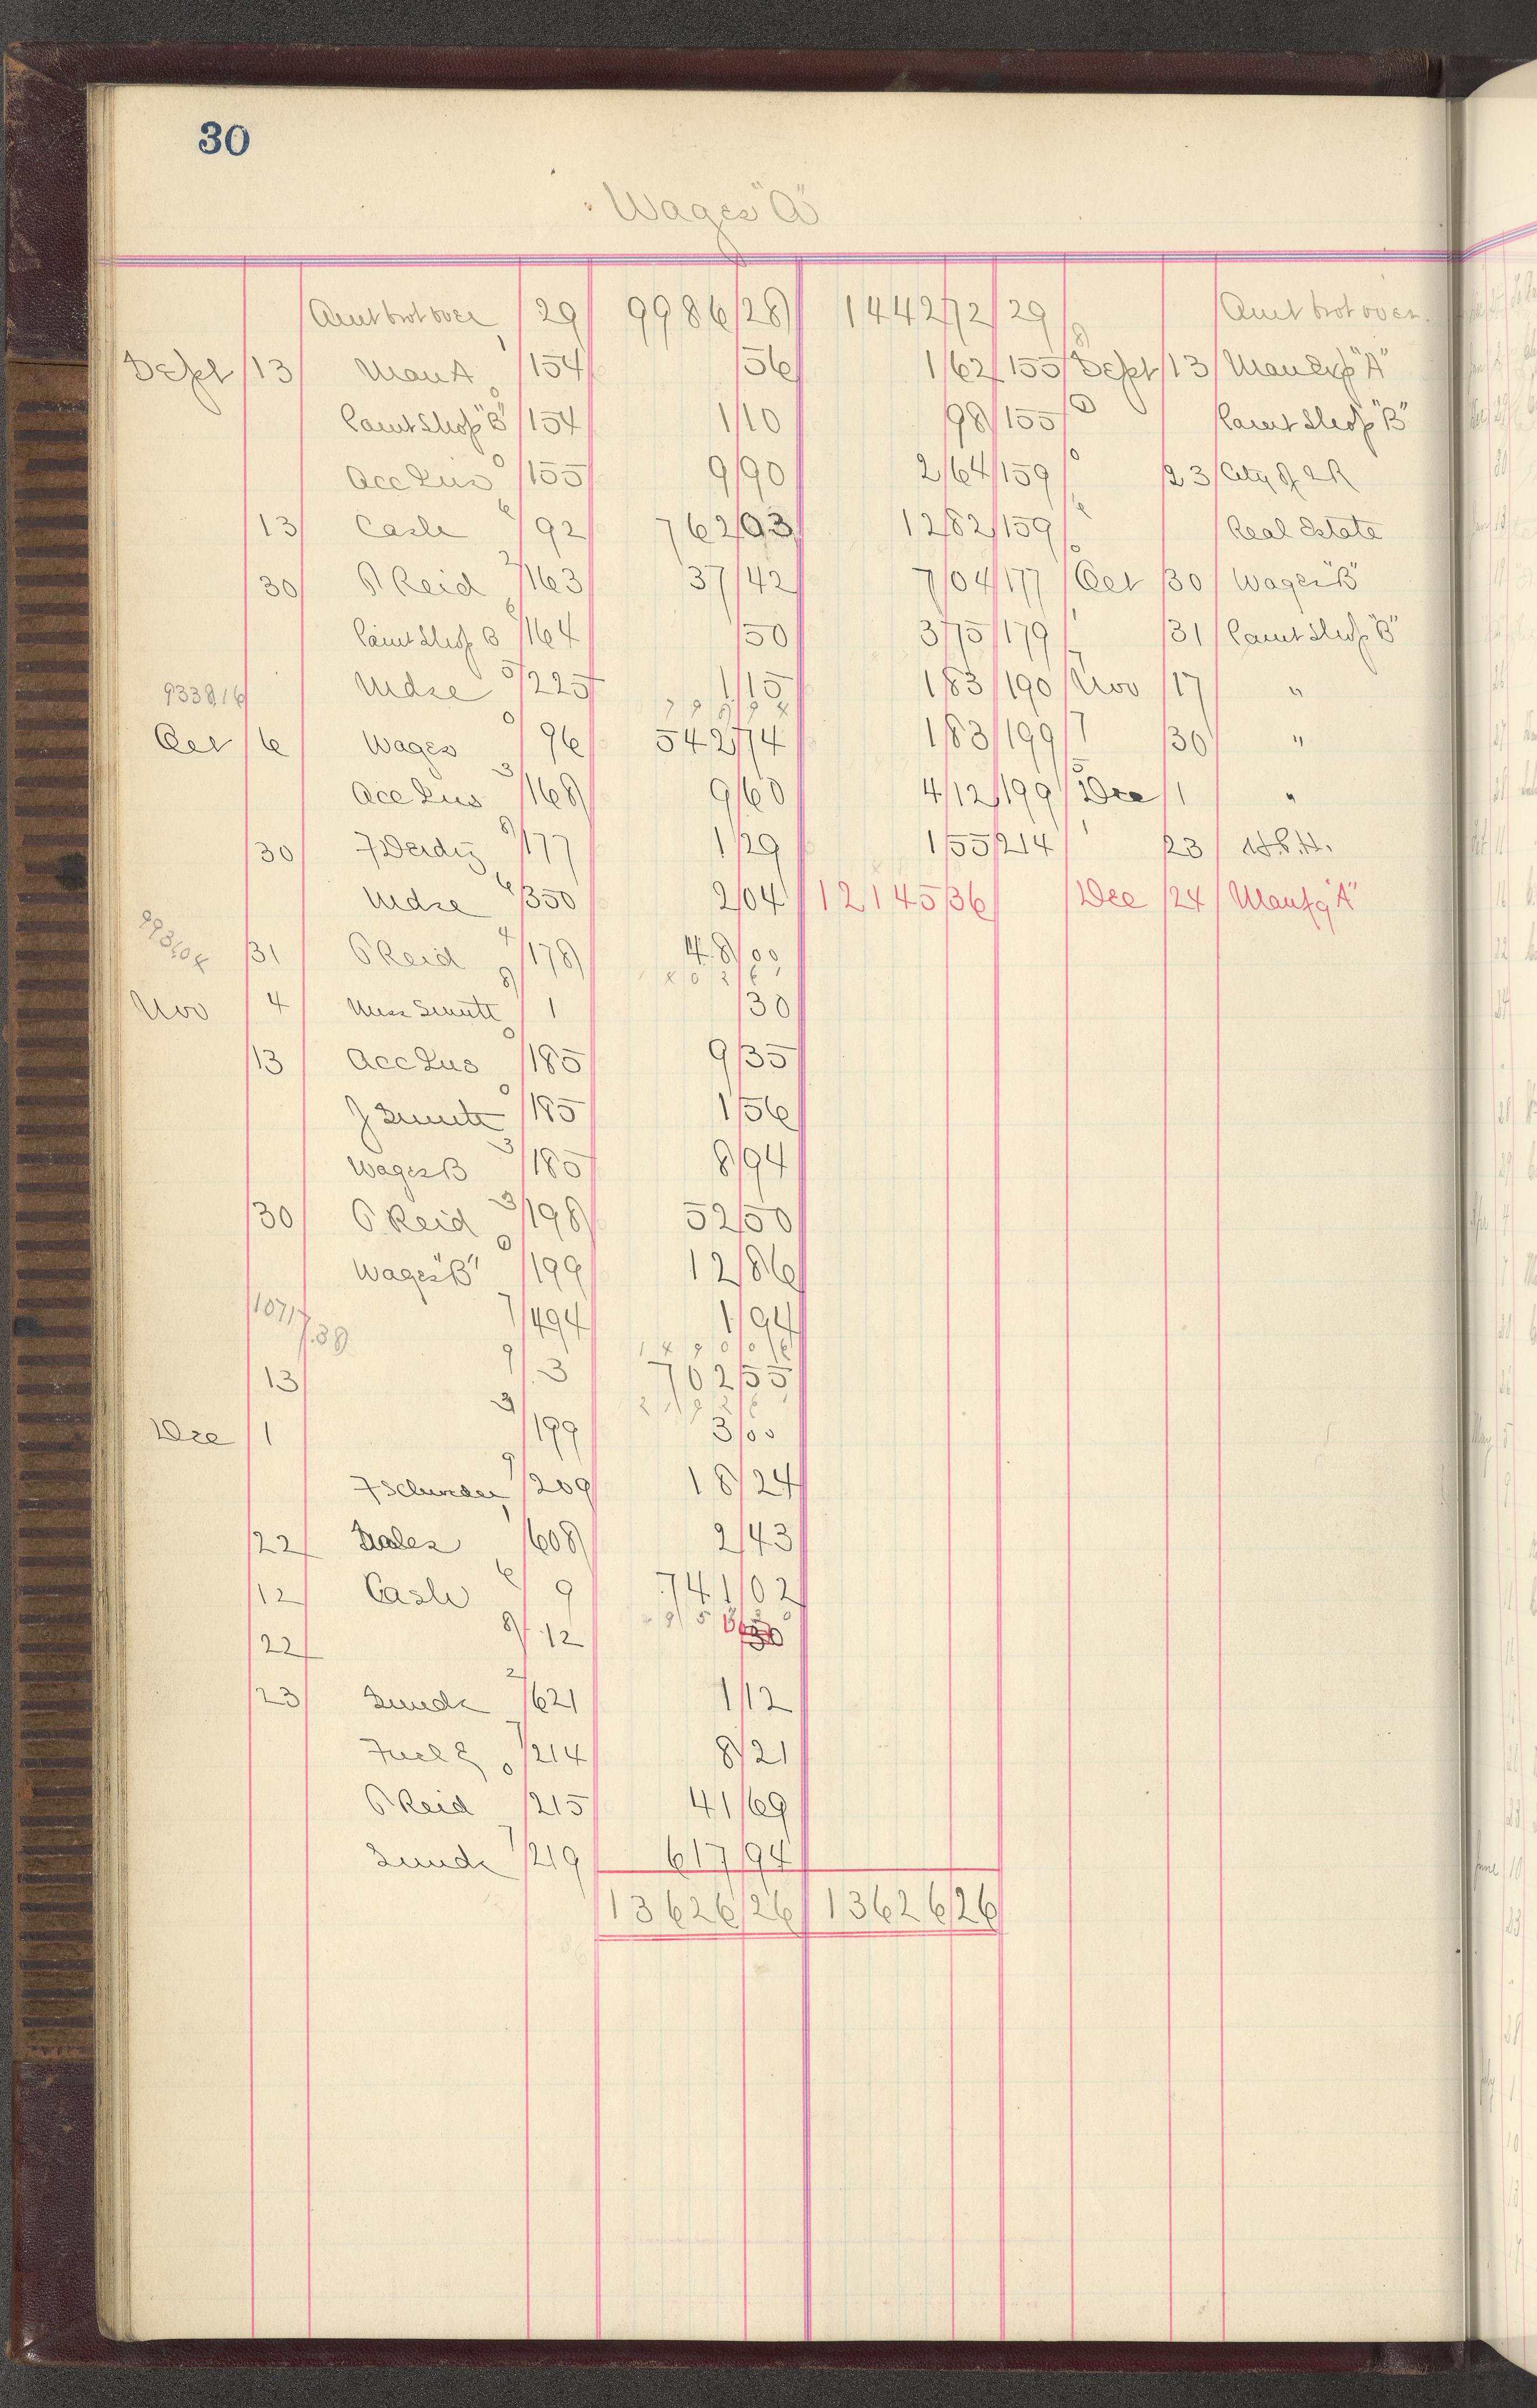 30
Wages "A"
Amt brot over 29 9986 28 1442 72 29 Amt brot over
Sept 13 Man A 154 56 1 62 155 Sept 13 Man Exp "A"
Paint Shop "B" 154 1 10 98 155 Paint Shop "B"
Acc Ins 155 9 90 2 64 159 23 City of
13 Cash 92 762 93 12 82 159 Real Estate
30 P Reid 163 37 42 7 04 177 Oct 30 Wages "B"
Paint Shop B 164 50 3 75 179 31 Paint Shop "B"
Mdse 225 1 15 1 83 190 Nov 17 "
9338.16
Oct 6 Wages 96 542 74 1 83 199 30 "
Acc Ins 168 9 60 4 12 199 Dec 1 "
30 177 1 29 1 55 214 23
Mdse 350 2 04 12145 36 Dec 24 Manfg "A"
31 P Reid 178 48 00
Nov 4 1 30
13 Acc Ins 185 9 35
J 185 1 56
Wages B 185 8 94
30 P Reid 198 52 50
Wages "B" 199 12 86
10717.38 494 1 94
13 3 702 55
Dec 1 199 3 00
209 18 24
22 608 2 43
12 Cash 9 741 02
22 12 30
23 Sunds 621 1 12
Fuel & 214 8 21
P Reid 215 41 69
Sunds 219 617 94
13626 26 13626 26